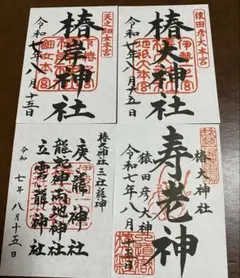 猿田彦大本宮
椿大神社
令和七年八月十五日
天之鈿女本宮
椿岸神社
令和七年八月十五日
椿大神社
寿老神
猿田彦大神
令和七年八月十五日
椿大神社三社龍神
庚龍神社
龍蛇神
立雲龍神社
令和七年八月十五日